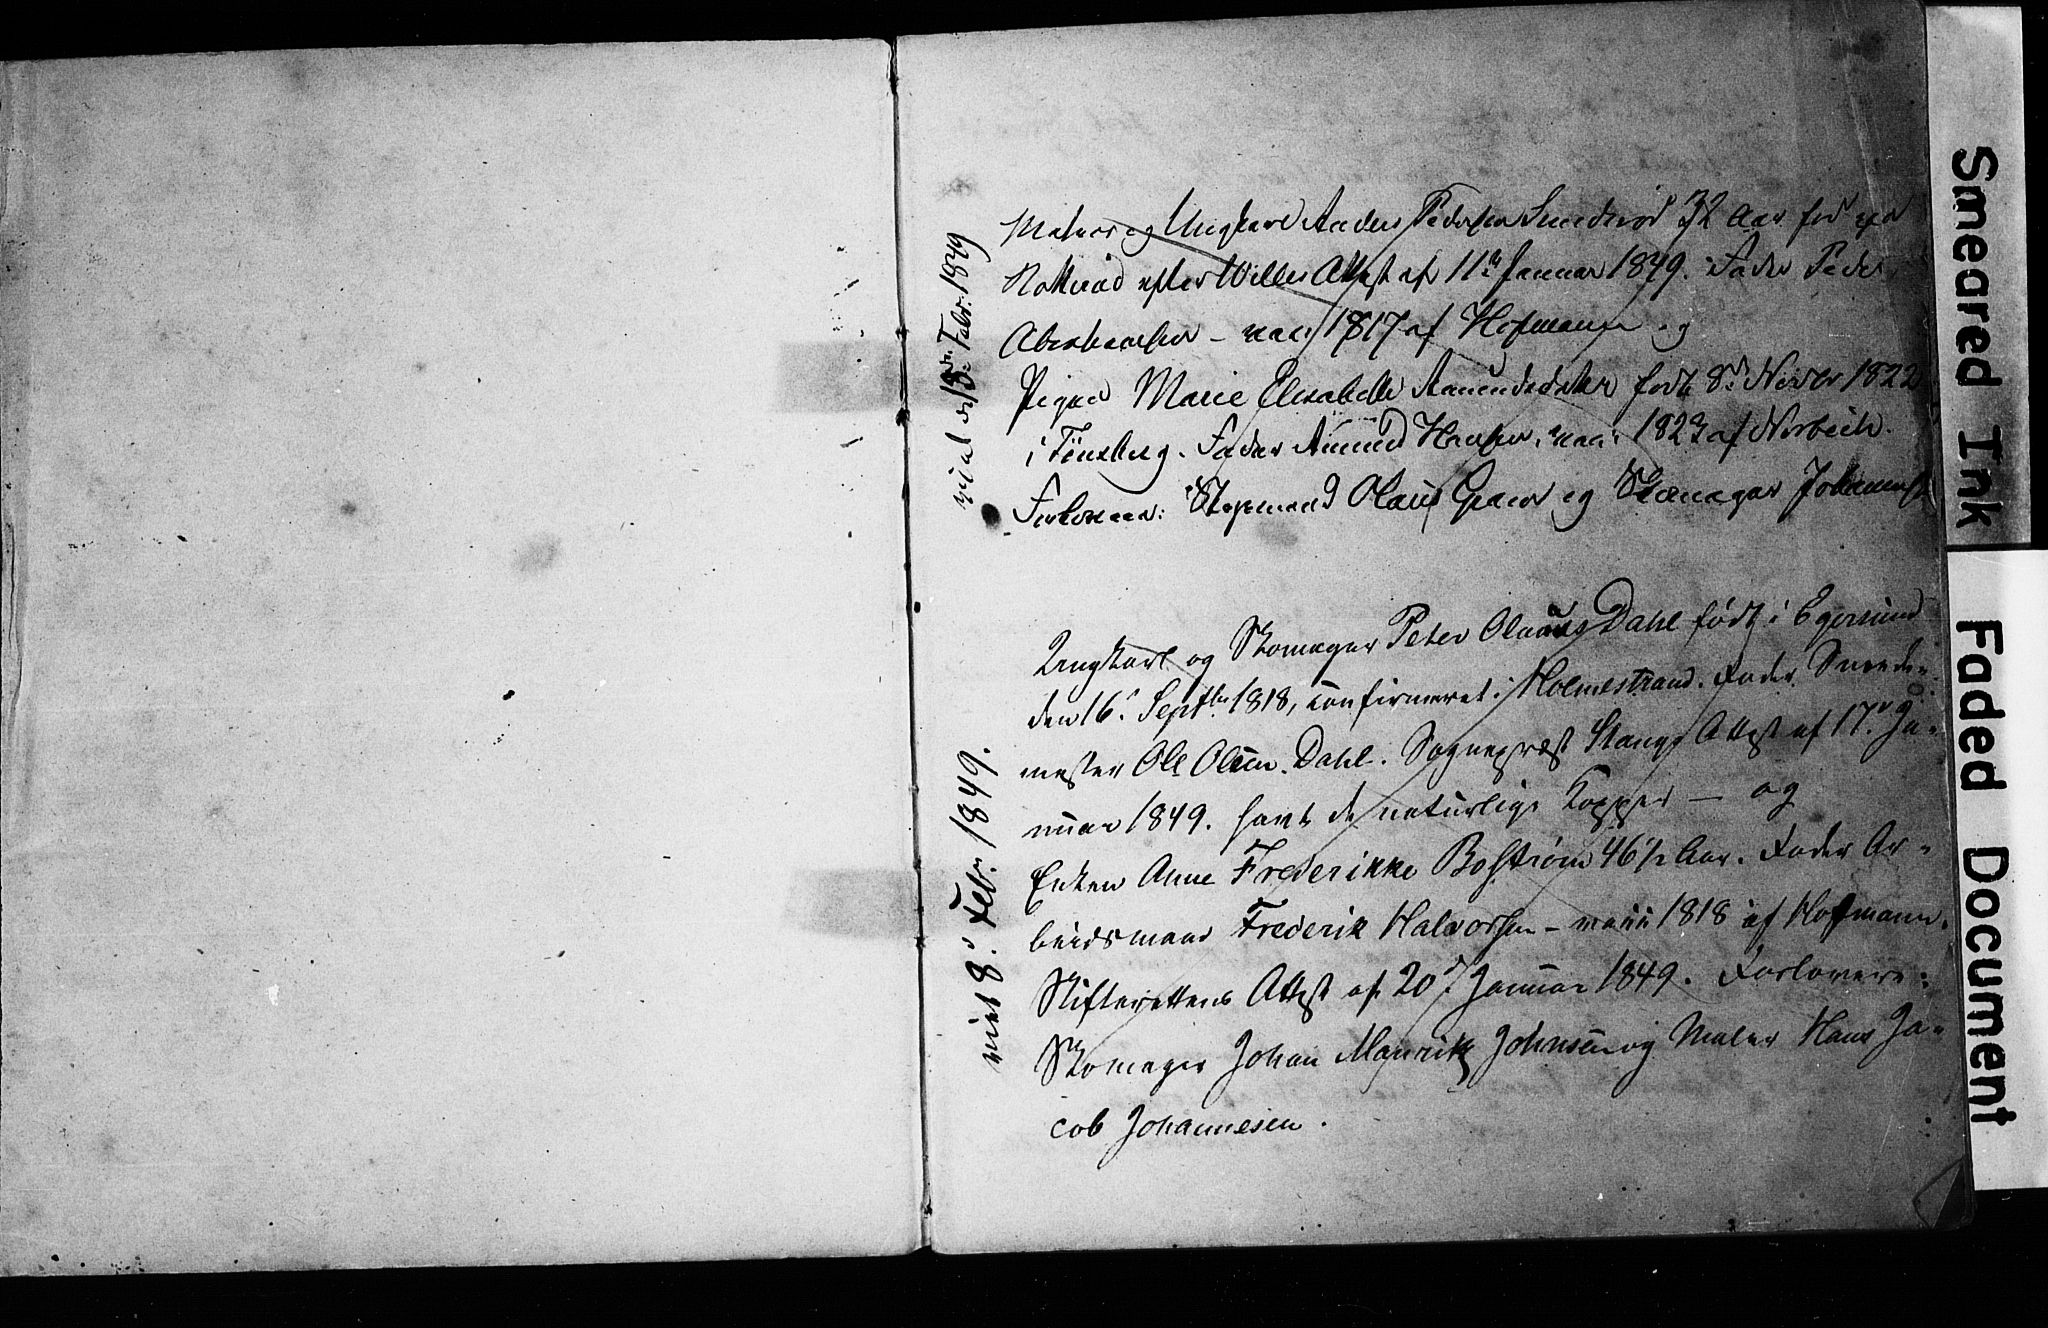 viet d. 18de Febr. 1849
Matros og Ungkarl Anders Pedersen Sunderød 32 Aar fød paa
Nøtterød efter Willes Attest af 11te Januar 1849. Fader Peder
Abrahamsen – vacc: 1817 af Hofmann og
Pigen Marie Elisabeth Amundsdatter født 8de Novbr 1822
i Tönsberg. Fader Amund Hansen, vacc: 1823 af Norbech.
Forlovere: Olaus og Skomager Johannes
viet 8. Febr. 1849.
Ungkarl og Skomager Peter Olaus Dahl født i Egersund
den 16. Septbr. 1818, confirmeret i Holmestrand. Fader Smede-
mester Ole Olsen Dahl. Sognepræst Stangs Attest af 17. Ja-
nuar 1849. havt de naturlige Kopper — og
Enken Anne Frederikke Bostrøm 46½ Aar. Fader Ar-
beidsmand Frederik Halvorsen – vacc: 1818 af Hofmann.
Skifterettens Attest af 20de Januar 1849. Forlovere:
Skomager Johan Mauritz Johnsen og Maler Hans Ja-
cob Johannesen.
Smeared Ink
Faded Document